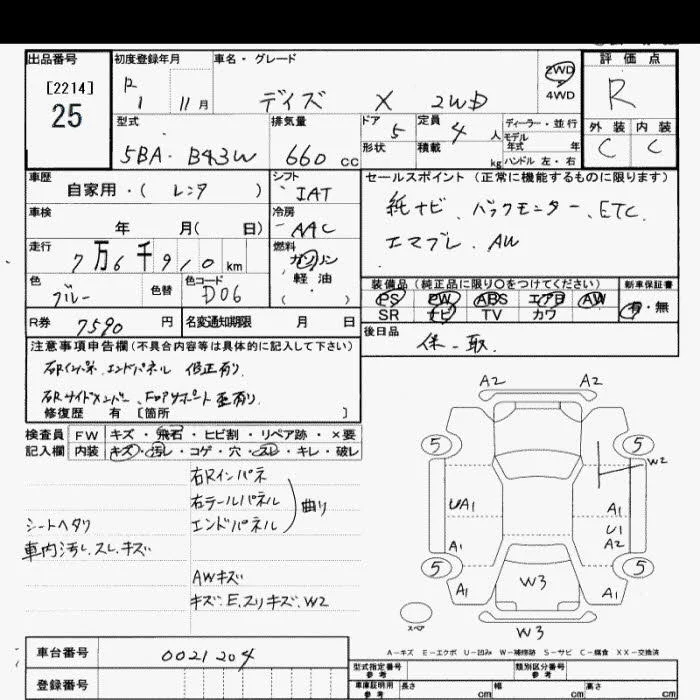 出品番号 初度登録年月 車名・グレード 評価点
[2214] 25
R 1 11月 デイズ X 2WD
2WD 4WD
R
型式 排気量 ドア 定員 ディーラー・並行 外装 内装
5BA-B43W 660cc 5 4人 モデル年式 年 C C
形状 積載 kg ハンドル 左・右
車歴 シフト セールスポイント(正常に機能するものに限ります)
自家用・( レンタ ) IAT
純ナビ、バックモニター、ETC、
車検 年 月( 日) 冷房 AAC
エマブレ、AW
走行 7万6千910km 燃料 ガソリン 軽油 ( )
色 ブルー 色替 色コード D06
装備品(純正品に限り○をつけてください) 新車保証書
PS PW ABS エアB AW 有・無
SR ナビ TV カワ
R券 7590円 名変通知期限 月 日 後日品
保-取
注意事項申告欄(不具合内容等は具体的に記入して下さい)
右Rインパネ、エンドパネル 修正有り
右Rサイドメンバー、Fコアサポート歪有り
修復歴 有 [箇所 ]
検査員 FW キズ・飛石・ヒビ割・リペア跡・×要
記入欄 内装 キズ・汚レ・コゲ・穴・スレ・キレ・破レ
右Rインパネ
右テールパネル 曲り
エンドパネル
シートヘタリ
車内汚レ、スレ、キズ
AWキズ
キズ、E、スリキズ、W2
A2 A2
5 5
W2
UA1 A1
U1
A1 A2
5 5
A1 W3 A1
スペア
W3
A-キズ E-エクボ U-凹み W-補修跡 S-サビ C-腐食 XX-交換済
車台番号 0021204
登録番号
型式指定番号 参考 類別区分番号 参考
車庫証明用 参考 長さ cm 幅 cm 高さ cm